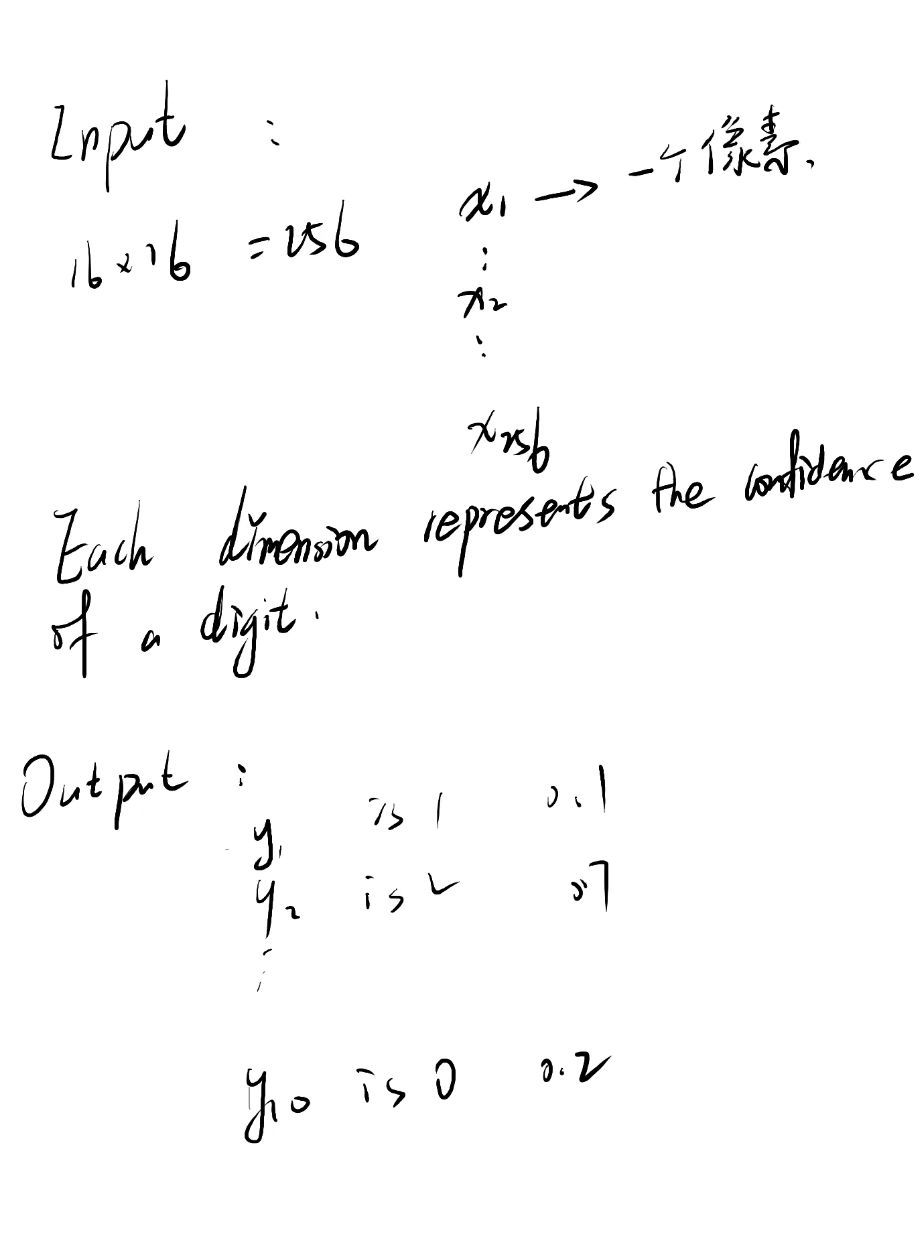 Input :
x₁ → 一个像素.
16 × 16 = 256
⋮
x₂
⋮
x₂₅₆
Each dimension represents the confidence
of a digit.
Output :
y₁ is 1 0.1
y₂ is 2 0.7
⋮
y₁₀ is 0 0.2